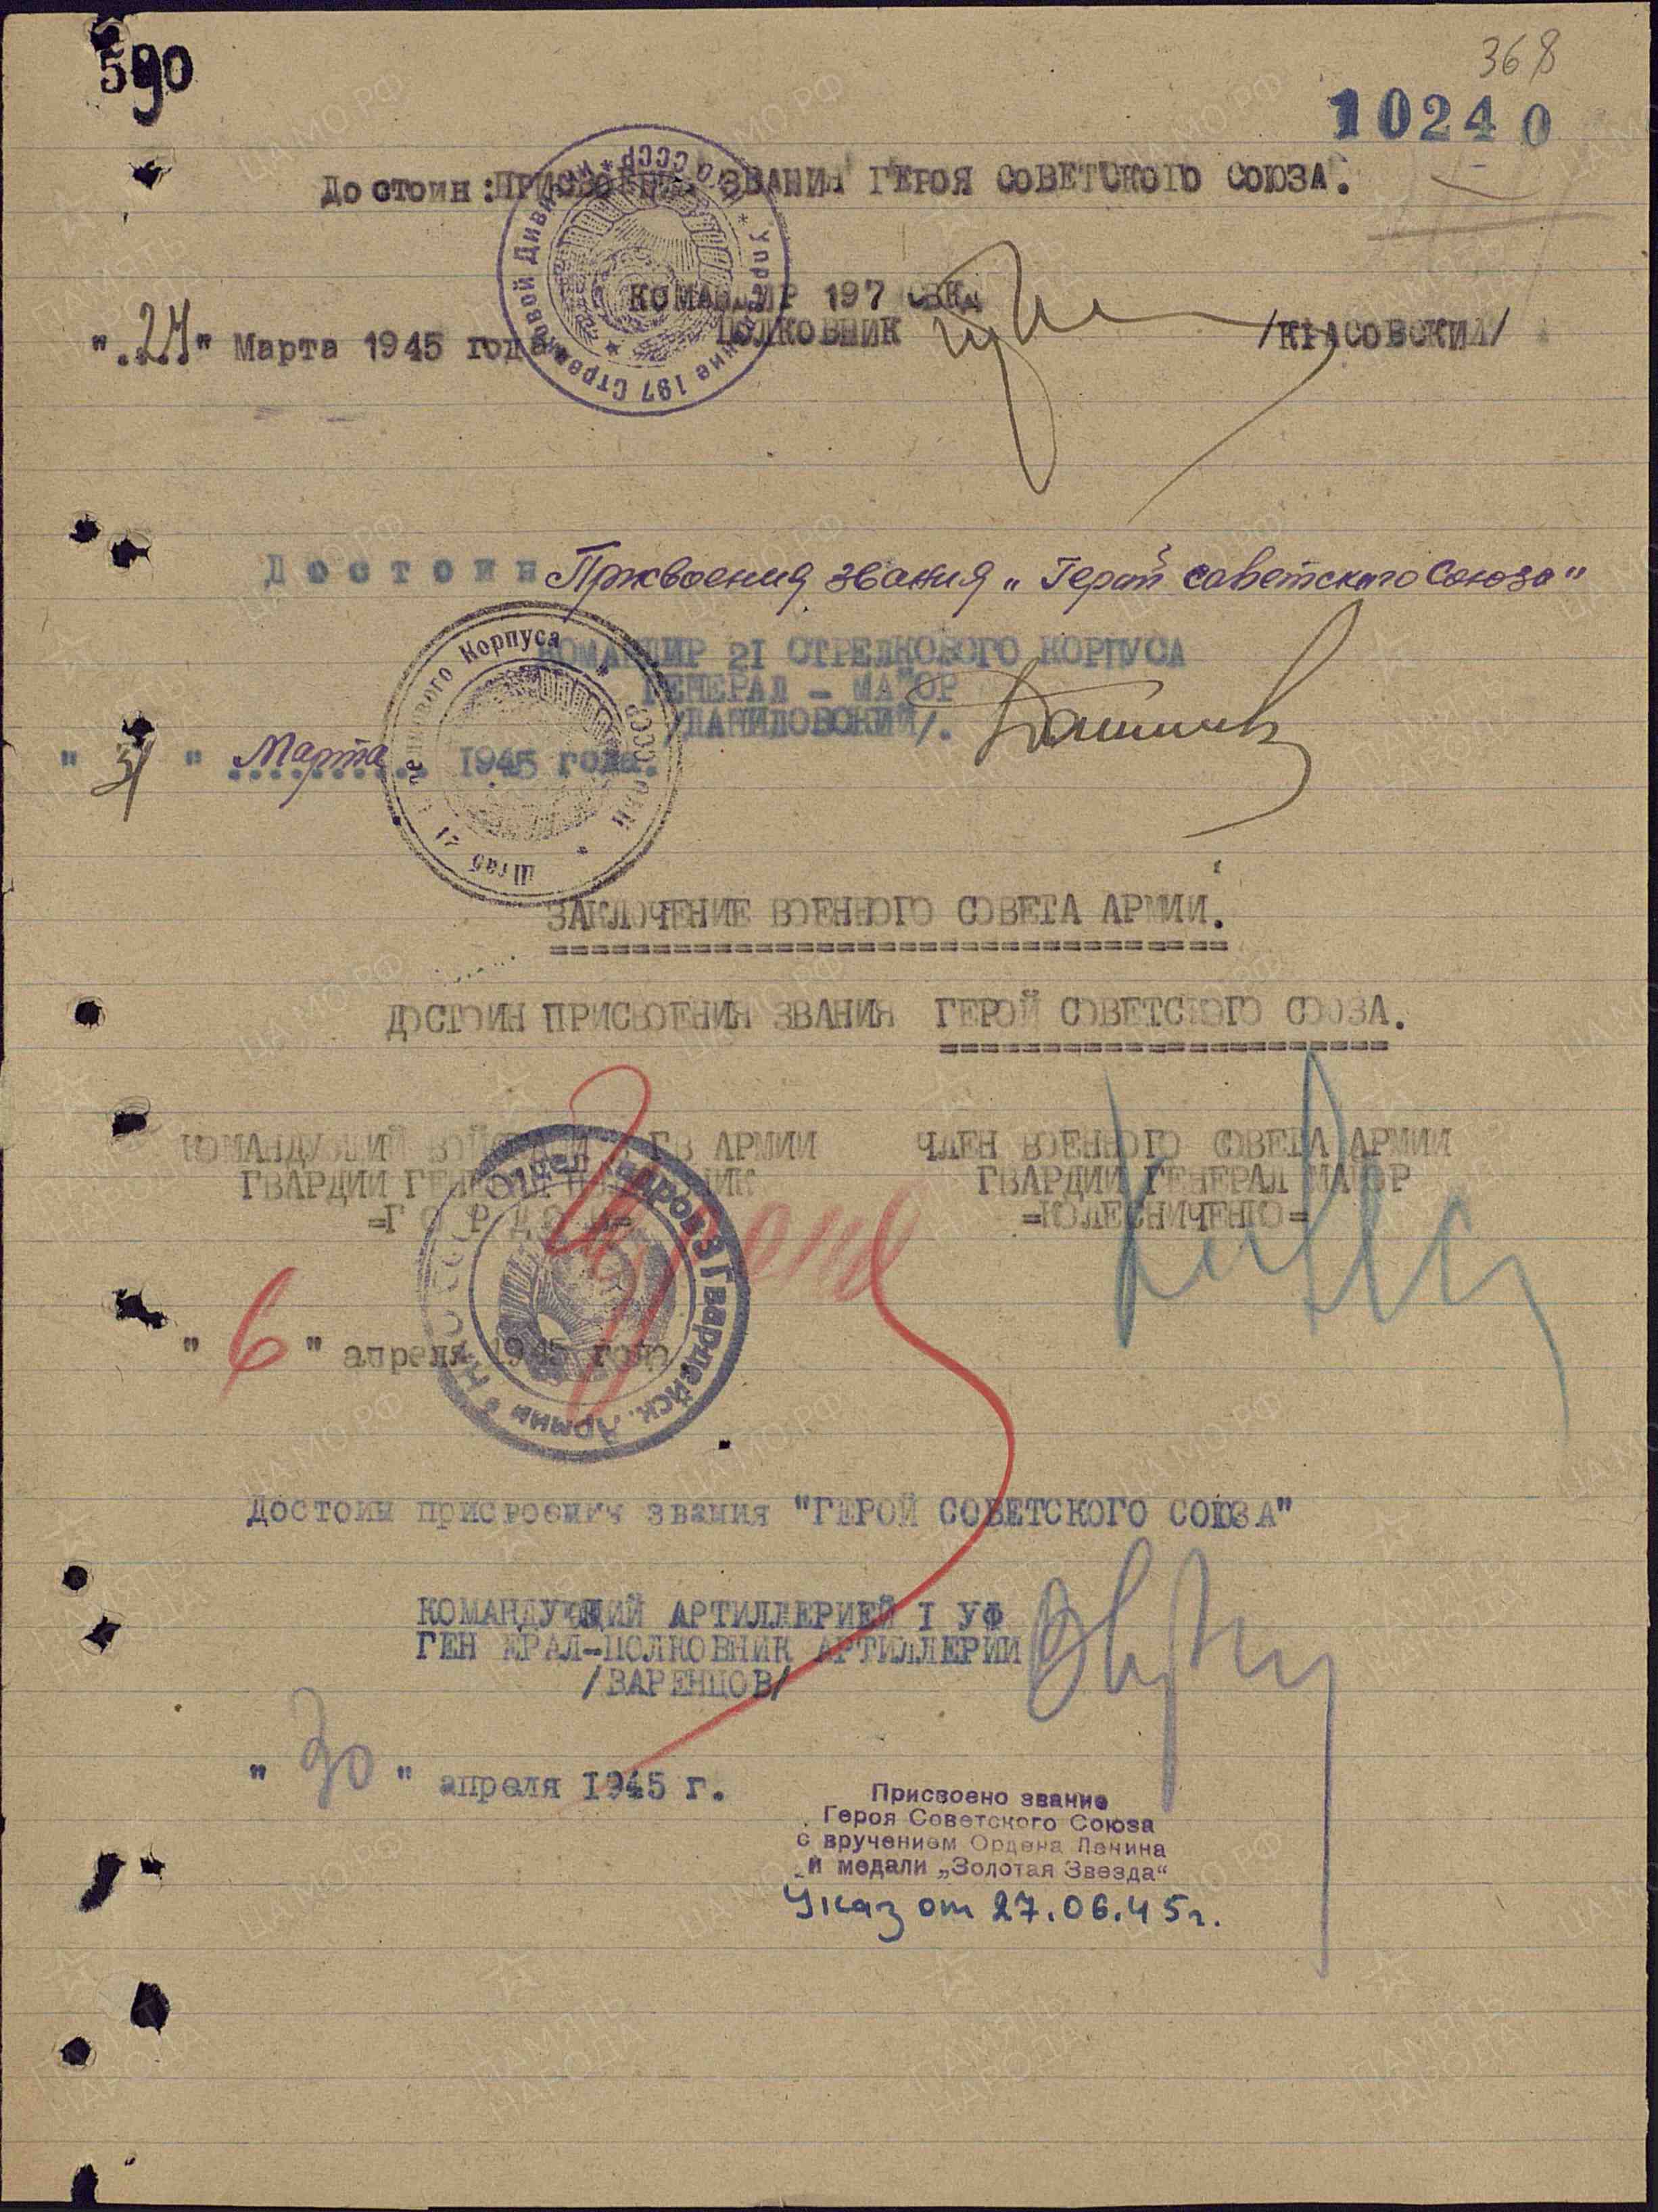 590
368
10240
Достоин: ПРИСВОЕНИЯ ЗВАНИЯ ГЕРОЯ СОВЕТСКОГО СОЮЗА.
КОМАНДИР 197 СВКД
ПОЛКОВНИК /КРАСОВСКИЙ/
"27" Марта 1945 года
Управление 197 Стрелковой Дивизии * НКО СССР *
Достоин Присвоения звания „Герой советского Союза"
КОМАНДИР 21 СТРЕЛКОВОГО КОРПУСА
ГЕНЕРАЛ - МАЙОР
/ДАНИЛОВСКИЙ/.
"31" Марта 1945 года.
Штаб 21 Стрелкового Корпуса * НКО СССР *
ЗАКЛЮЧЕНИЕ ВОЕННОГО СОВЕТА АРМИИ.
ДОСТОИН ПРИСВОЕНИЯ ЗВАНИЯ ГЕРОЙ СОВЕТСКОГО СОЮЗА.
КОМАНДУЮЩИЙ ВОЙСКАМИ ГВ АРМИИ
ГВАРДИИ ГЕНЕРАЛ ПОЛКОВНИК
=ГОРДОВ=
ЧЛЕН ВОЕННОГО СОВЕТА АРМИИ
ГВАРДИИ ГЕНЕРАЛ МАЙОР
=КОЛЕСНИЧЕНКО=
Отдел кадров 3 Гвардейск. Армии * НКО СССР
"6" апреля 1945 года
Достоин присвоения звания "ГЕРОЙ СОВЕТСКОГО СОЮЗА"
КОМАНДУЮЩИЙ АРТИЛЛЕРИЕЙ I УФ
ГЕН ЕРАЛ-ПОЛКОВНИК АРТИЛЛЕРИИ
/ВАРЕНЦОВ/
"30" апреля 1945 г.
Присвоено звание
Героя Советского Союза
с вручением Ордена Ленина
и медали „Золотая Звезда"
Указ от 27.06.45г.